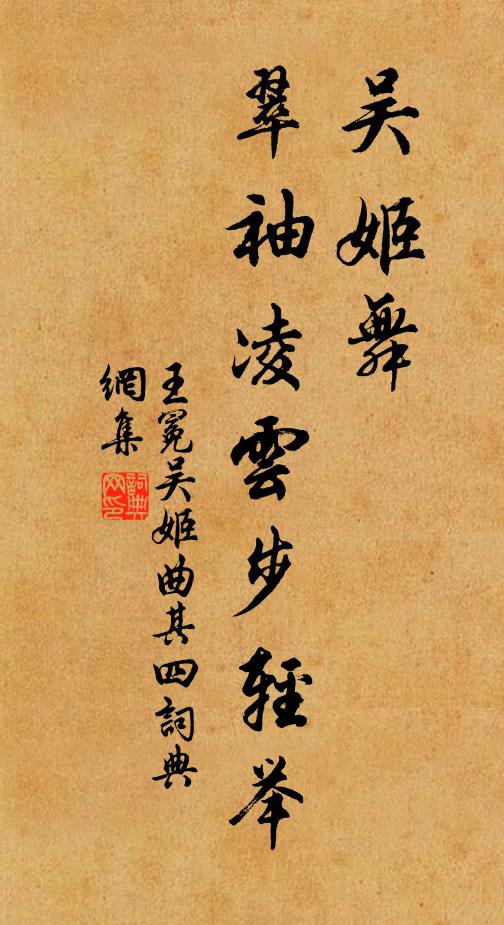 吴姬舞
翠袖凌雲步輕举
王冕吴姬曲其四詞典
網集
詞典
网印